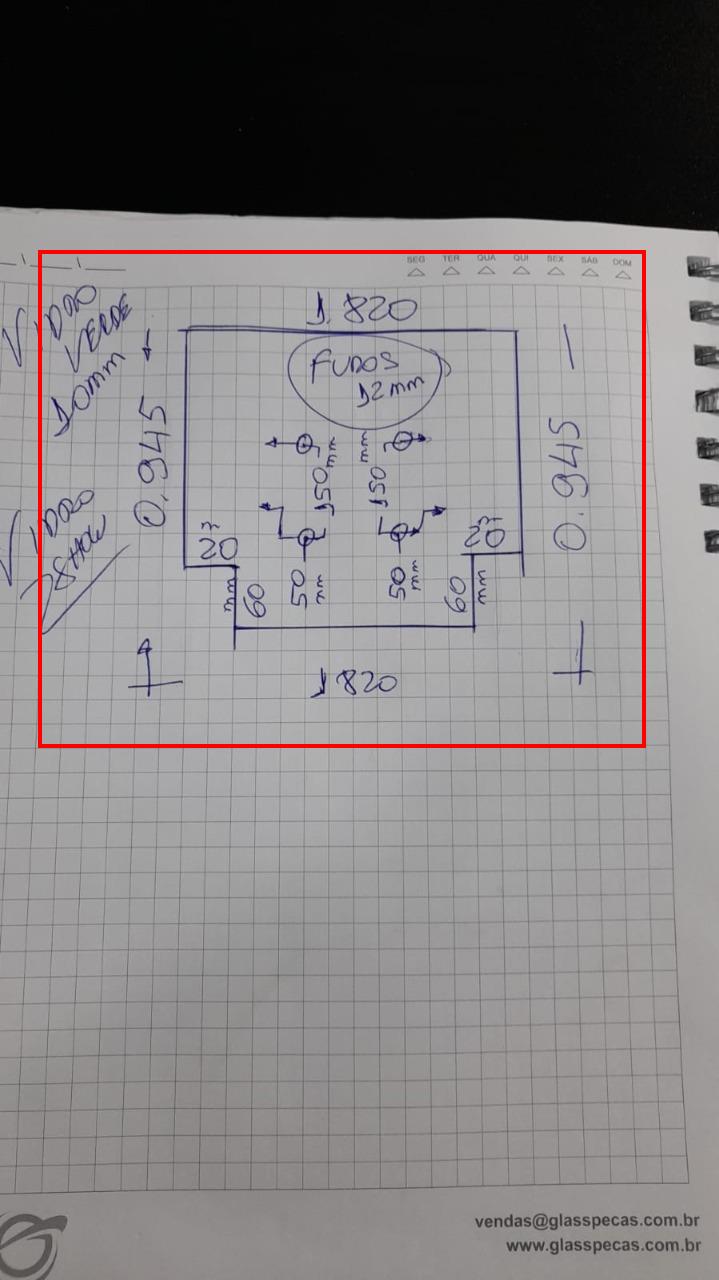 SEG TER QUA QUI SEX SÁB DOM
VIDRO
VERDE
10mm
1.820
FUROS
12mm
0.945
0.945
150 mm
150 mm
20
20
60 mm
50 mm
50 mm
60 mm
VIDRO
1820
vendas@glasspecas.com.br
www.glasspecas.com.br